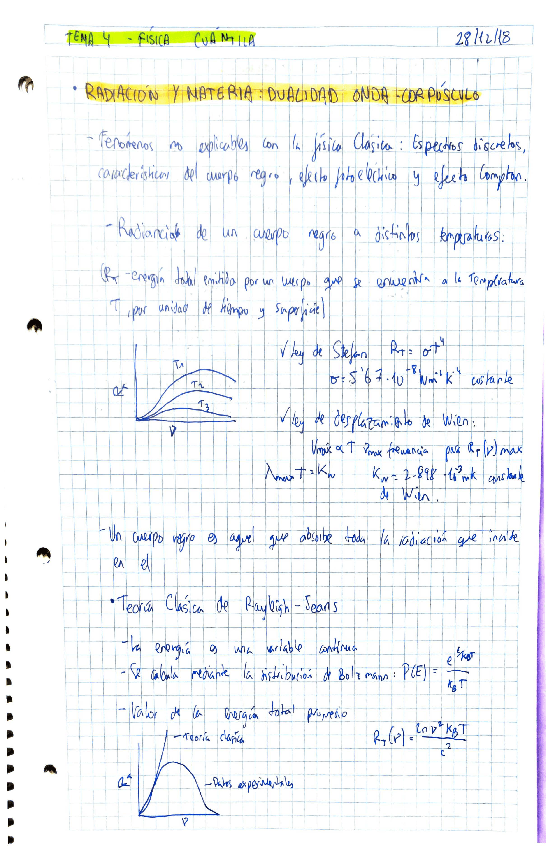 TEMA 4 - FÍSICA CUÁNTICA
28/12/18
• RADIACIÓN Y MATERIA: DUALIDAD ONDA-CORPÚSCULO
- Fenómenos no explicables con la física Clásica: Espectros discretos,
características del cuerpo negro, efecto fotoeléctrico y efecto Compton.
- Radiancia de un cuerpo negro a distintas temperaturas:
(R_T - energía total emitida por un cuerpo que se encuentra a la Temperatura
T, por unidad de tiempo y superficie)
T1
T2
T3
ν
✓ Ley de Stefan R_T = σT^4
σ = 5'67·10^-8 Wm^-2 K^-4 constante
✓ Ley de desplazamiento de Wien:
ν_max ∝ T ν_max frecuencia para R_T(ν) max
λ_max T = K_W K_W = 2.898·10^-3 mK constante
de Wien.
- Un cuerpo negro es aquel que absorbe toda la radiación que incide
en el
• Teoría Clásica de Rayleigh-Jeans
- La energía es una variable continua
- Se calcula mediante la distribución de Bolzmann: P(E) = e^E/K_BT / K_BT
- Valor de la energía total promedio
R_T(ν) = 2πν²K_BT / c²
- Teoría clásica
- Datos experimentales
ν